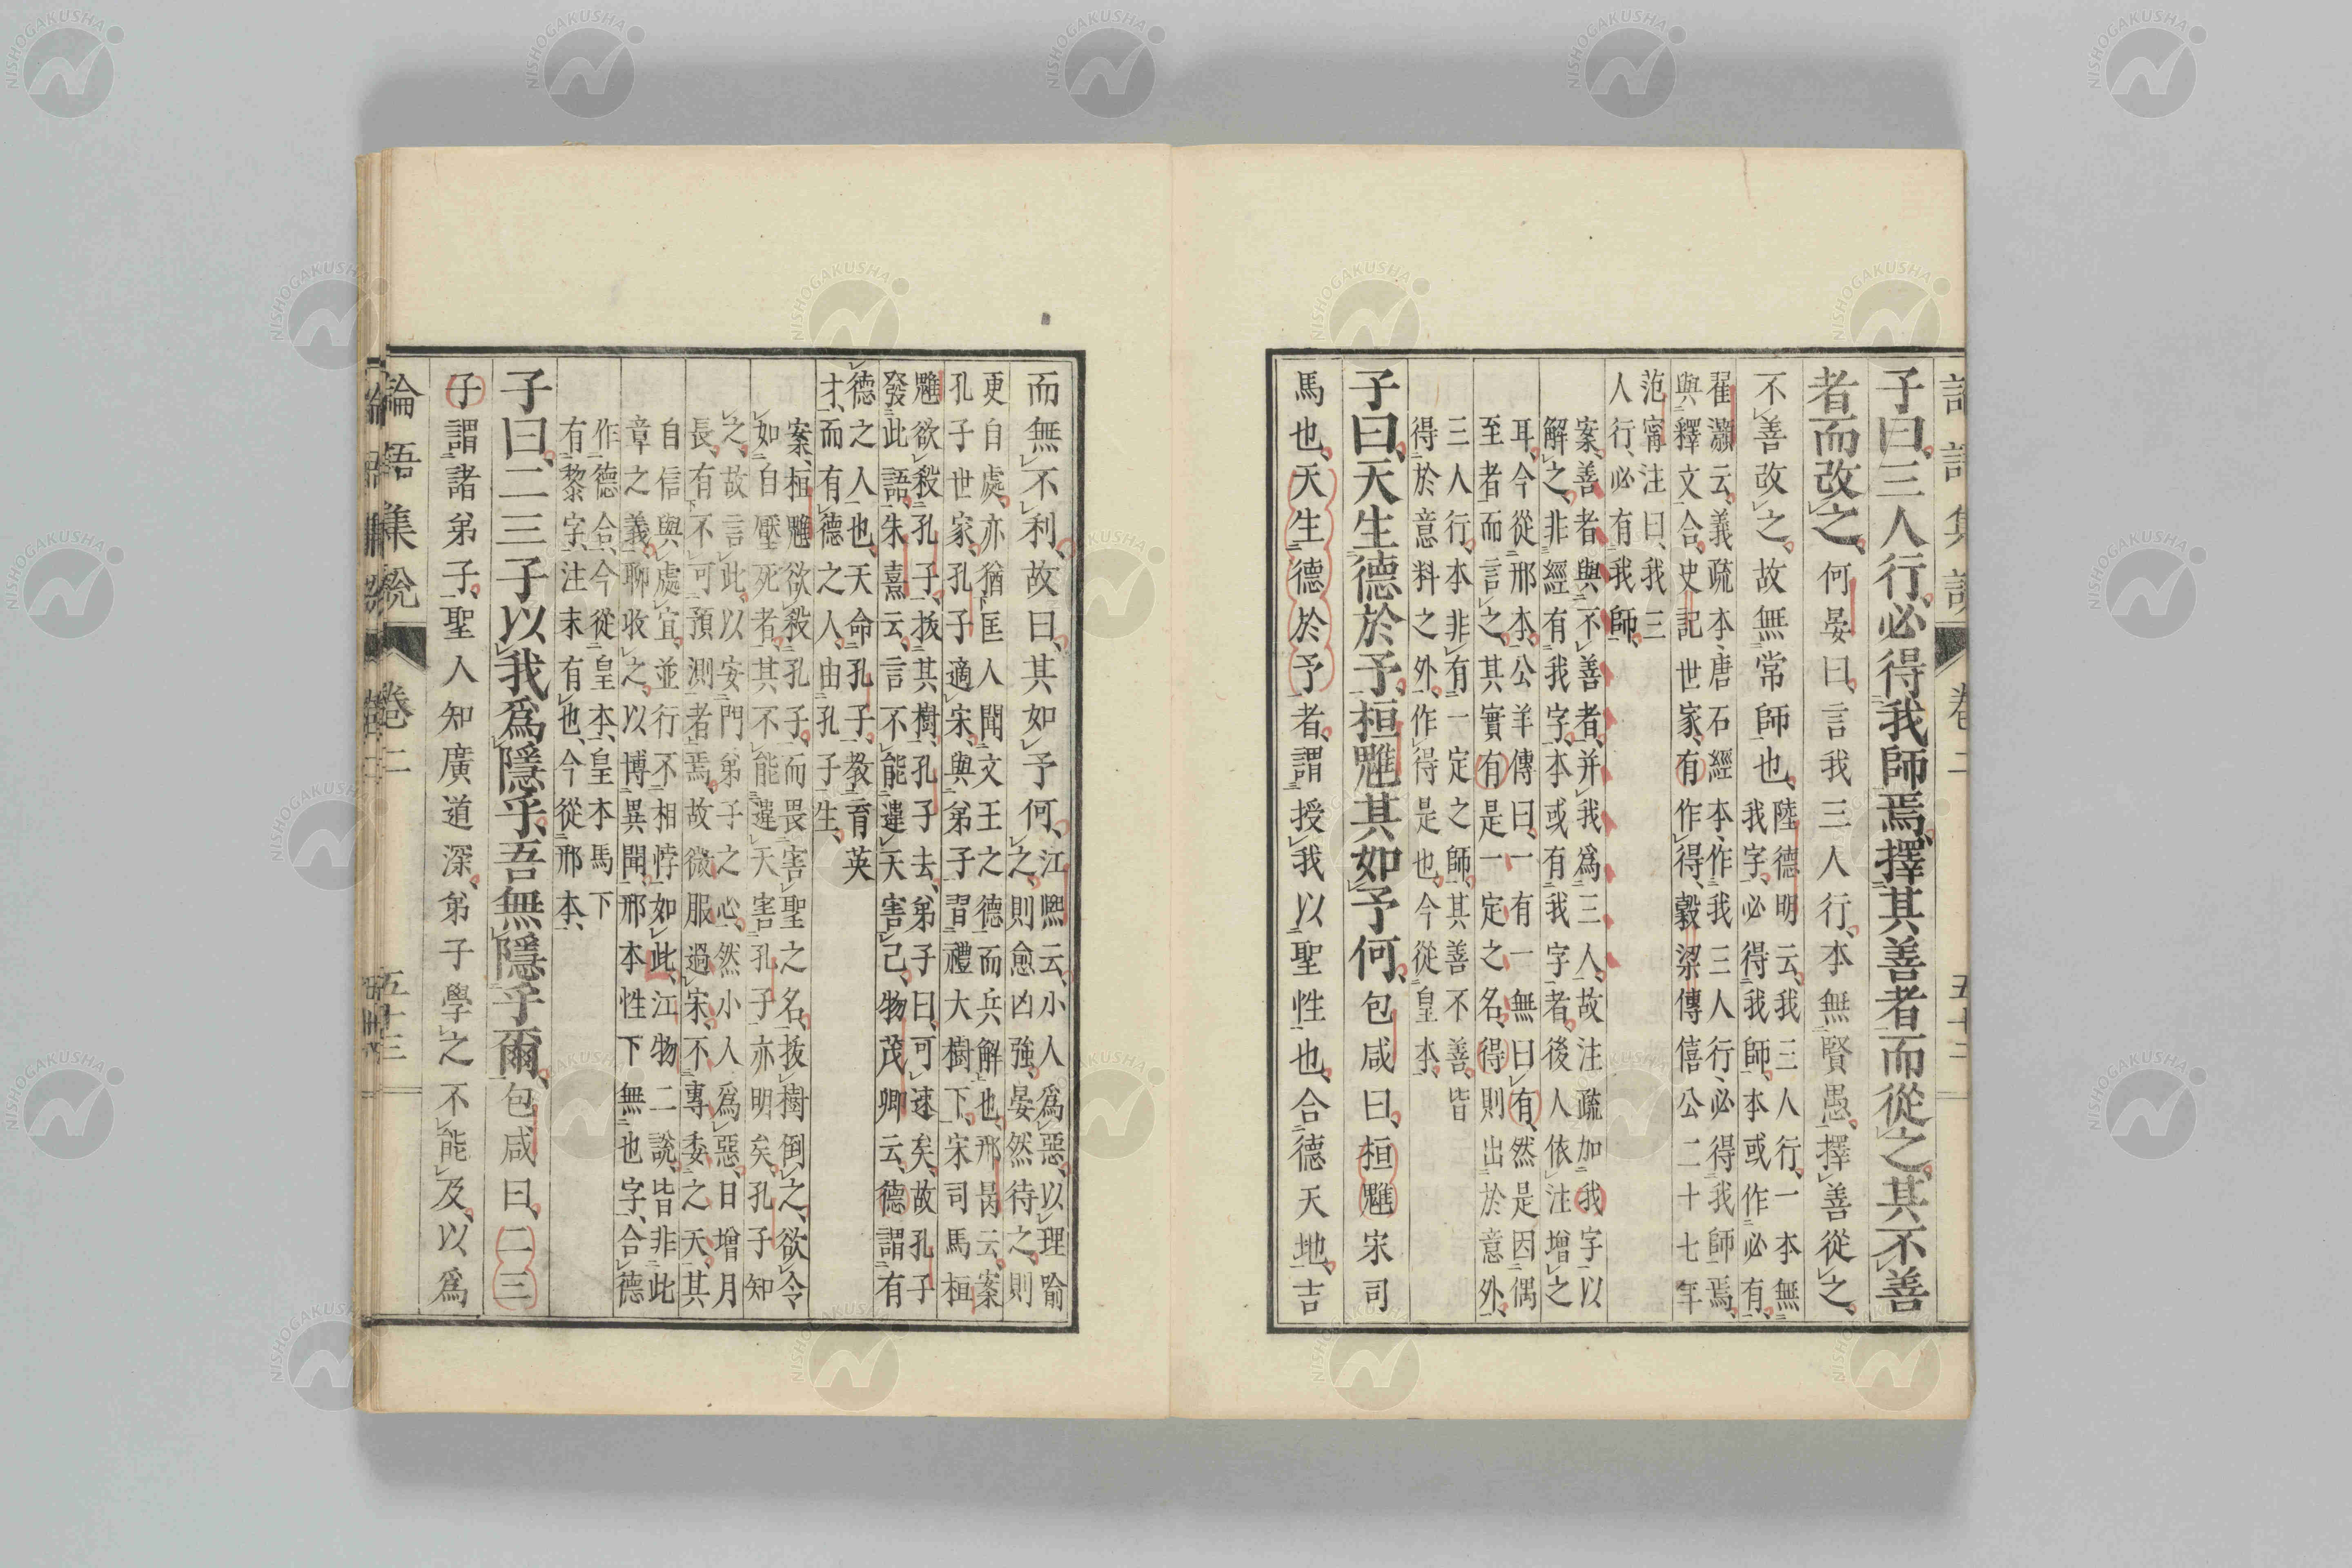 子曰、三人行、必得我師焉、擇其善者而從之、其不善
者而改之、何晏曰、言我三人行、本無賢愚、擇善從之、
不善改之、故無常師也、陸德明云、我三人行、一本無
我字、必得我師、本或作必有、
翟灝云、義疏本、唐石經本、作我三人行、必得我師焉、
與釋文合、史記世家、有作得、穀梁傳僖公二十七年
范甯注曰、我三
人行、必有我師、
案、善者與不善者、并我爲三人、故注疏加我字以
解之、非經有我字、本或有我字者、後人依注增之
耳、今從邢本、公羊傳曰、一有一無曰有、然是因偶
至者而言之、其實有是一定之名、得則出於意外、
三人行、本非有一定之師、其善不善、皆
得於意料之外、作得是也、今從皇本、
子曰、天生德於予、桓魋其如予何、包咸曰、桓魋宋司
馬也、天生德於予者、謂授我以聖性也、合德天地、吉
而無不利、故曰、其如予何、江熙云、小人爲惡、以理喻
之、則愈凶強、晏然待之、則
更自處、亦猶匡人聞文王之德而兵解也、邢昺云、案
孔子世家、孔子適宋、與弟子習禮大樹下、宋司馬桓
魋欲殺孔子、拔其樹、孔子去、弟子曰、可速矣、故孔子
發此語、朱熹云、言不能違天害己、物茂卿云、德謂有
德之人也、天命孔子、教育英
才、而有德之人、由孔子生、
案、桓魋欲殺孔子、而畏害聖之名、拔樹倒之、欲令
如自壓死者、其不能違天害孔子亦明矣、孔子知
之、故言此、以安門弟子之心、然小人爲惡、日增月
長、有不可預測者焉、故微服過宋、不專委之天、其
自信與處宜、並行不相悖如此、江物二說、皆非此
章之義、聊收之、以博異聞、邢本性下無也字、合德
作德合、今從皇本、皇本馬下
有黎字、注末有也、今從邢本、
子曰、二三子以我爲隱乎、吾無隱乎爾、包咸曰、二三
子謂諸弟子、聖人知廣道深、弟子學之不能及、以爲
論語集說 卷二 五十三